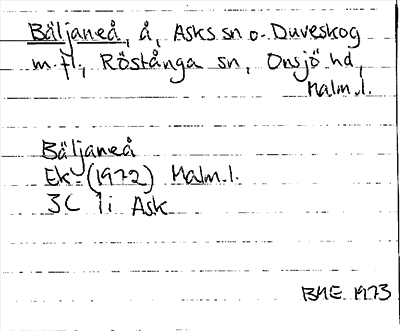 Bäljaneå, å, Asks sn o. Duveskog
m.fl., Röstånga sn, Onsjö hd,
Malm.l.
Bäljaneå
Ek (1972) Malm.l.
3C 1i Ask
BHE 1973